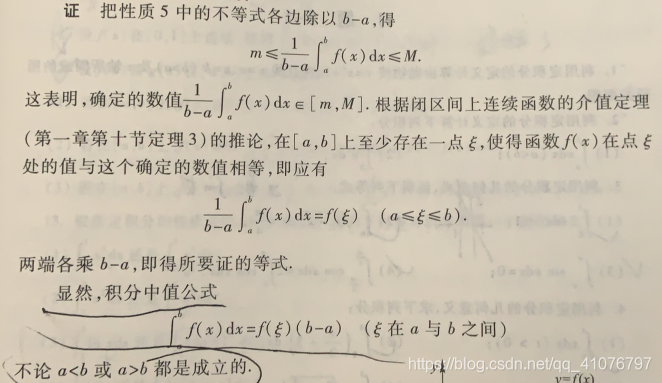 证 把性质 5 中的不等式各边除以 b-a,得
m≤\frac{1}{b-a}∫_a^b f(x)dx≤M.
这表明,确定的数值\frac{1}{b-a}∫_a^b f(x)dx∈[m,M].根据闭区间上连续函数的介值定理
(第一章第十节定理3)的推论,在[a,b]上至少存在一点ξ,使得函数f(x)在点ξ
处的值与这个确定的数值相等,即应有
\frac{1}{b-a}∫_a^b f(x)dx=f(ξ) (a≤ξ≤b).
两端各乘 b-a,即得所要证的等式.
显然,积分中值公式
∫_a^b f(x)dx=f(ξ)(b-a) (ξ在a与b之间)
不论 a<b 或 a>b 都是成立的.
https://blog.csdn.net/qq_41076797
y=f(x)